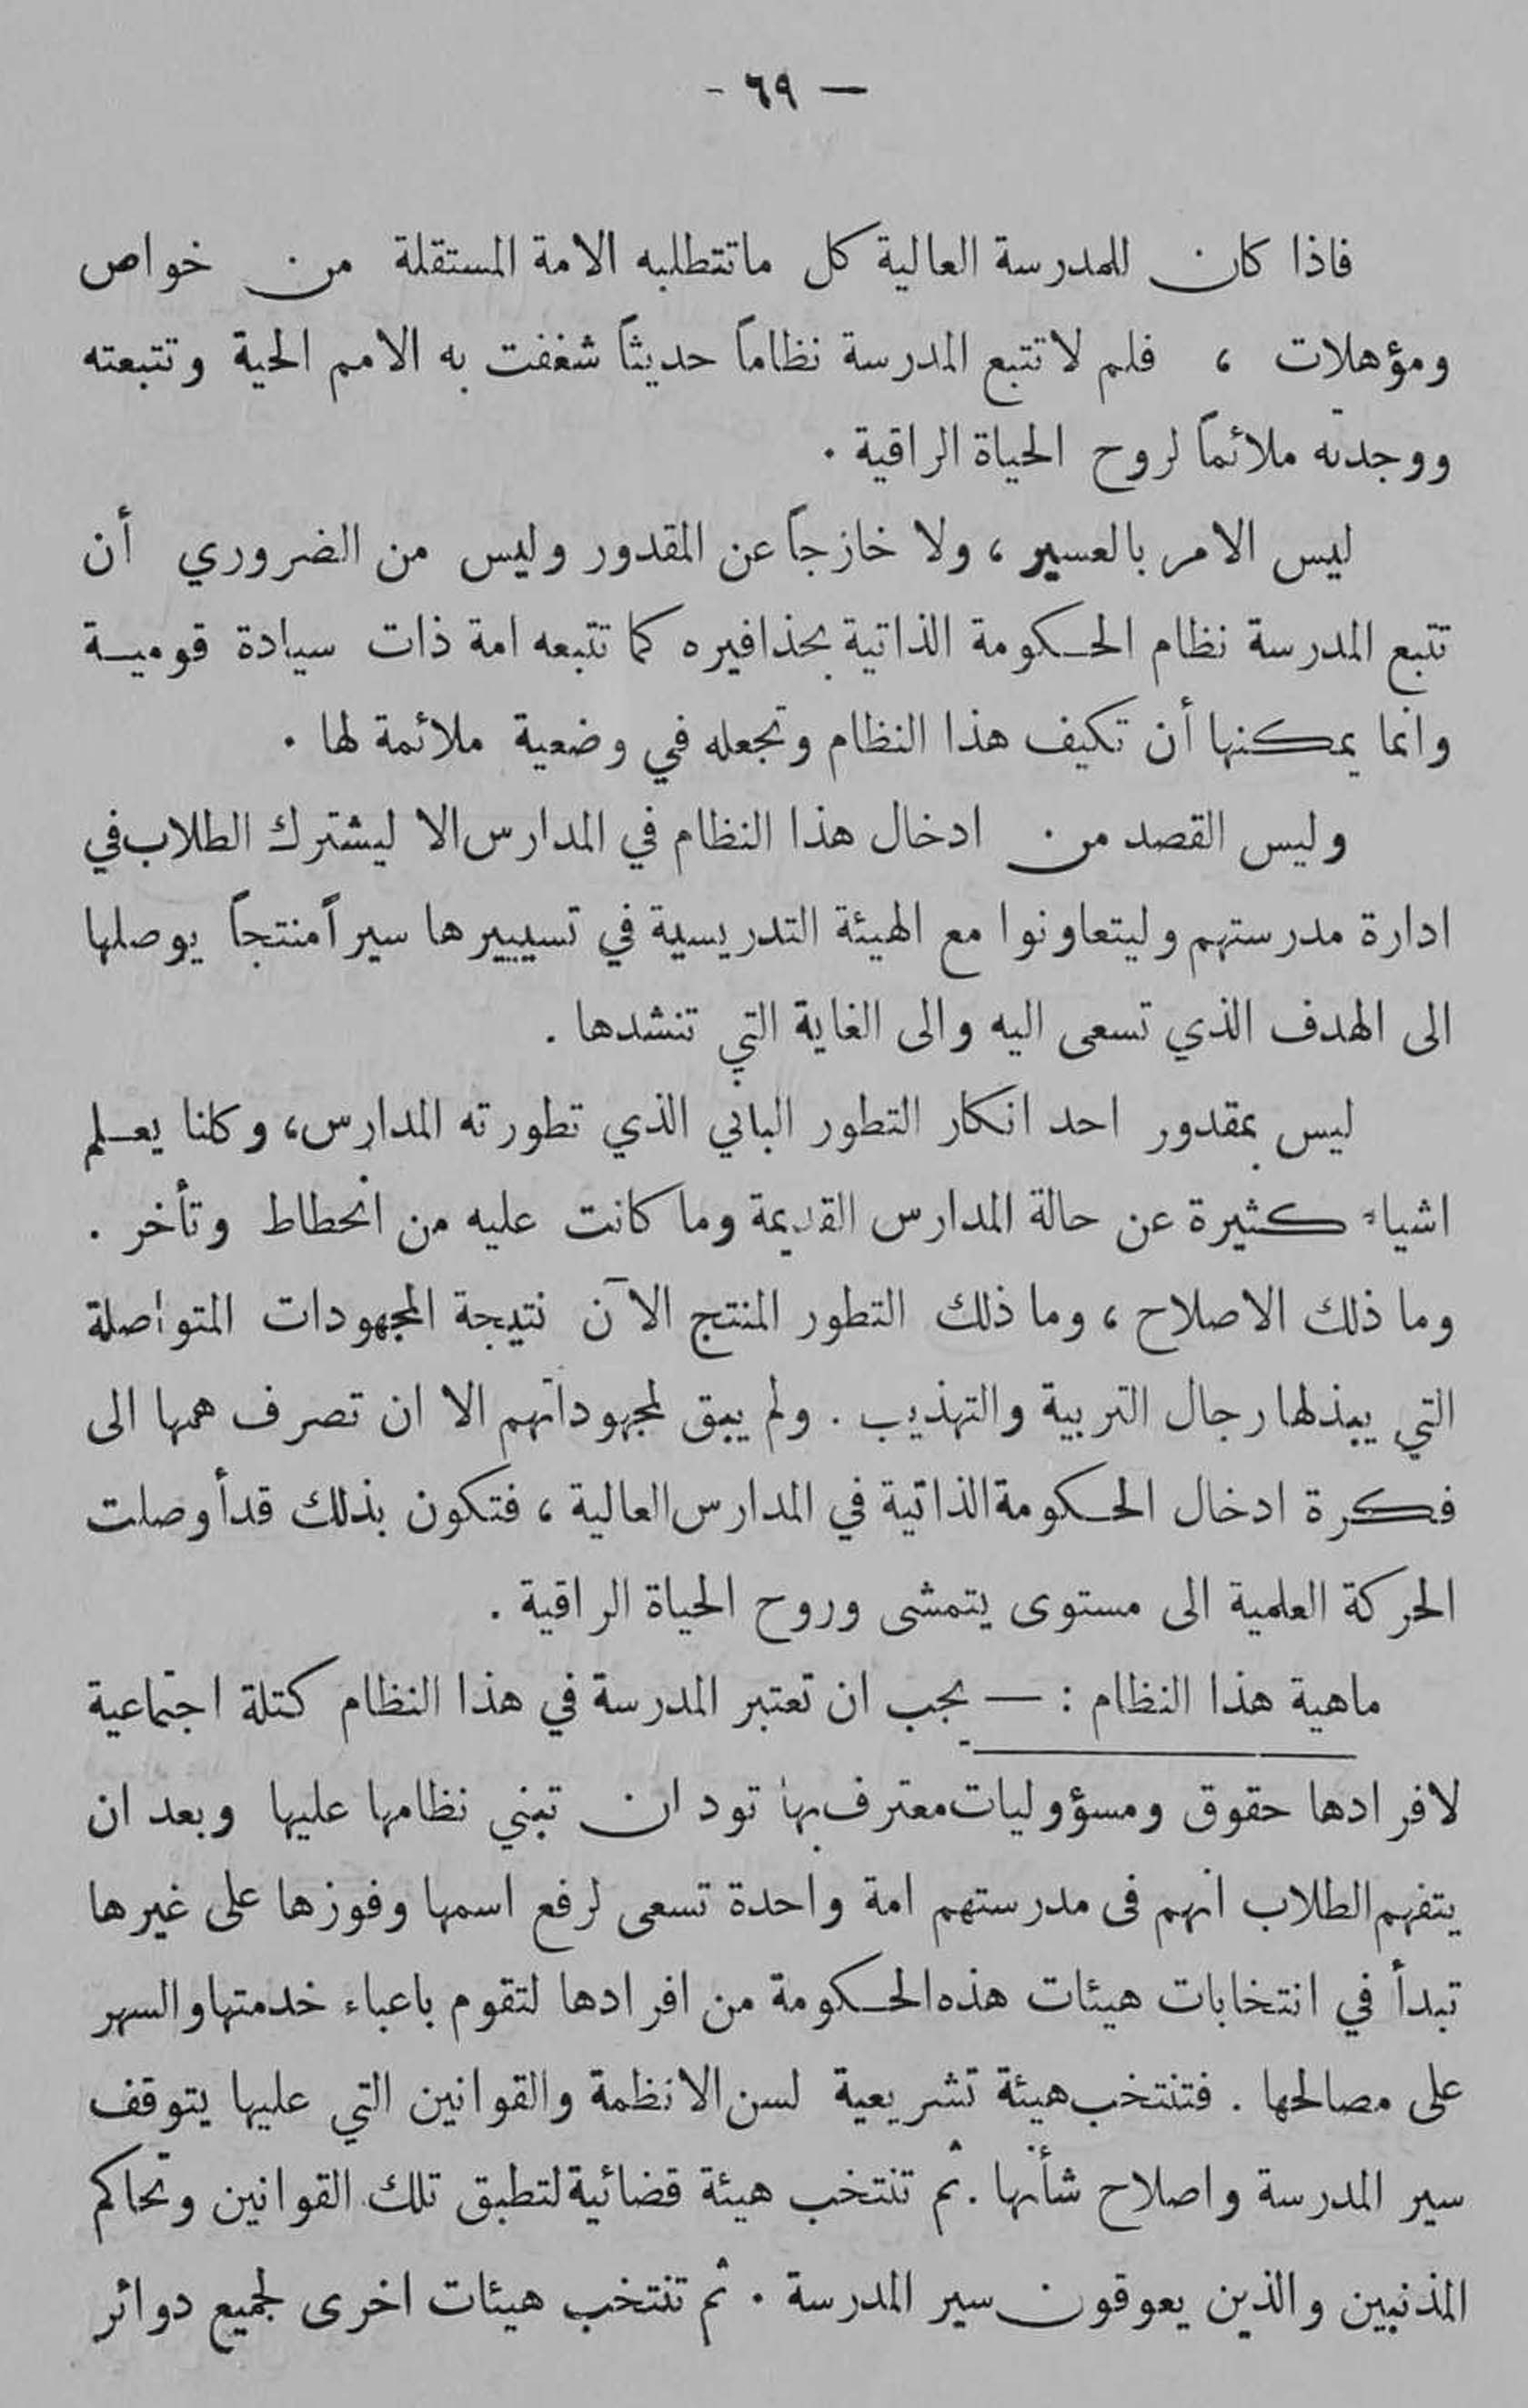 — ٦٩ -
فاذا كان للمدرسة العالية كل ماتتطلبه الامة المستقلة من خواص
ومؤهلات ، فلم لا تتبع المدرسة نظاماً حديثاً شغفت به الامم الحية وتتبعته
ووجدته ملائماً لروح الحياة الراقية .
ليس الامر بالعسير ، ولا خازجاً عن المقدور وليس من الضروري أن
تتبع المدرسة نظام الحكومة الذاتية بحذافيره كما تتبعه امة ذات سيادة قومية
وانما يمكنها أن تكيف هذا النظام وتجعله في وضعية ملائمة لها .
وليس القصد من ادخال هذا النظام في المدارس الا ليشترك الطلاب في
ادارة مدرستهم وليتعاونوا مع الهيئة التدريسية في تسييرها سيراً منتجاً يوصلها
الى الهدف الذي تسعى اليه والى الغاية التي تنشدها .
ليس بمقدور احد انكار التطور الباني الذي تطورته المدارس، وكلنا يعلم
اشياء كثيرة عن حالة المدارس القديمة وما كانت عليه من انحطاط وتأخر .
وما ذلك الاصلاح ، وما ذلك التطور المنتج الآن نتيجة المجهودات المتواصلة
التي يبذلها رجال التربية والتهذيب . ولم يبق لمجهوداتهم الا ان تصرف همها الى
فكرة ادخال الحكومة الذاتية في المدارس العالية ، فتكون بذلك قد أوصلت
الحركة العلمية الى مستوى يتمشى وروح الحياة الراقية .
ماهية هذا النظام : — يجب ان تعتبر المدرسة في هذا النظام كتلة اجتماعية
لافرادها حقوق ومسؤوليات معترف بها تود ان تبني نظامها عليها وبعد ان
يتفهم الطلاب انهم فى مدرستهم امة واحدة تسعى لرفع اسمها وفوزها على غيرها
تبدأ في انتخابات هيئات هذه الحكومة من افرادها لتقوم باعباء خدمتها والسهر
على مصالحها . فتنتخب هيئة تشريعية لسن الانظمة والقوانين التي عليها يتوقف
سير المدرسة واصلاح شأنها . ثم تنتخب هيئة قضائية لتطبق تلك القوانين وتحاكم
المذنبين والذين يعوقون سير المدرسة . ثم تنتخب هيئات اخرى لجميع دوائر